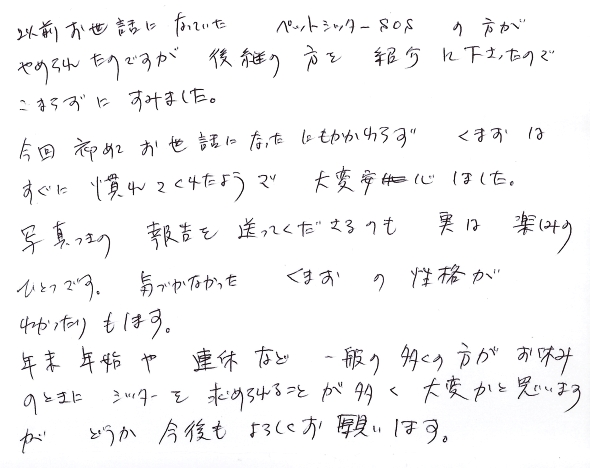 以前お世話になっていた ペットシッターSOS の方が
やめられたのですが 後継の方を 紹介 に下さったので
こまらずに すみました。
今回 初めて お世話になったにもかかわらず くまお は
すぐに 慣れてくれたようで 大変安心しました。
写真つきの 報告を 送ってくださるのも 実は 楽しみの
ひとつです。 気づかなかった くまお の 性格が
わかったりもします。
年末年始や 連休など 一般の 多くの方が お休み
のときに シッターを 求められることが多く 大変かと思います
が どうか 今後も よろしくお願いします。